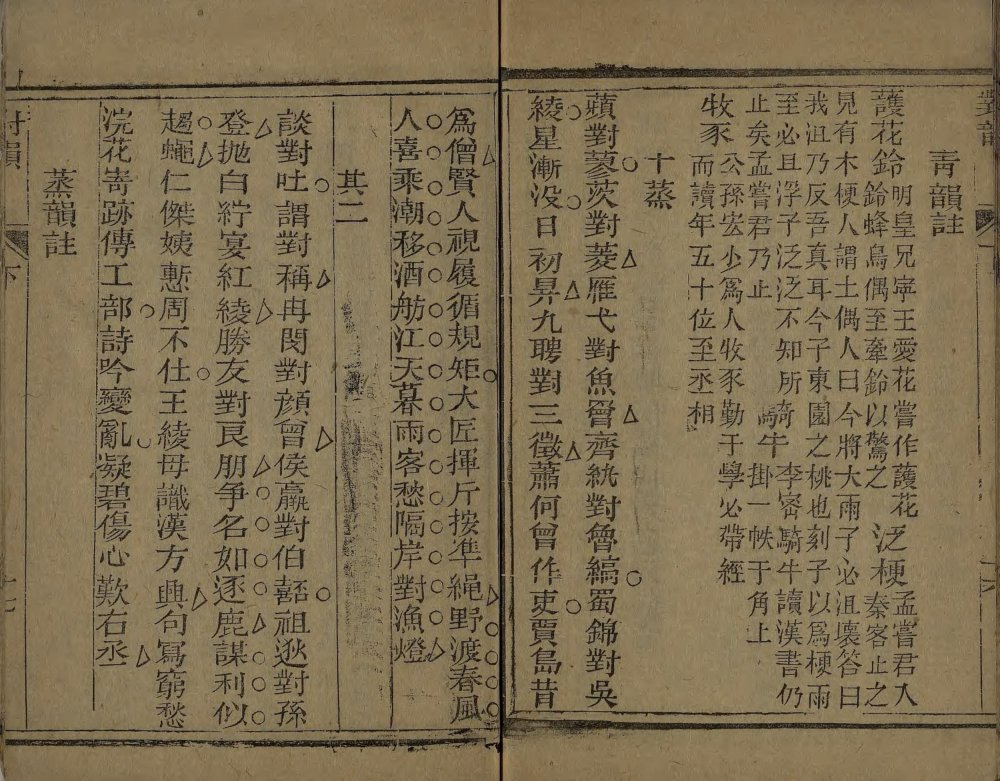 對韻
青韻註
護花鈴 明皇兄寧王愛花嘗作護花
鈴蜂鳥偶至牽鈴以驚之 泛梗 孟嘗君入秦客止之
見有木梗人謂土偶人曰今將大雨子必沮壞答曰
我沮乃反吾真耳今子東園之桃也刻子以為梗雨
至必且浮子泛泛不知所
止矣孟嘗君乃止 騎牛 李密騎牛讀漢書仍掛一帙于角上
牧豕 公孫宏少為人牧豕勤于學必帶經
而讀年五十位至丞相
十蒸
蘋對蓼茨對菱雁弋對魚罾齊紈對魯縞蜀錦對吳
綾星漸没日初昇九聘對三徵蕭何曾作吏賈島昔
為僧賢人視履循規矩大匠揮斤按準繩野渡春風
人喜乘潮移酒舫江天暮雨客愁隔岸對漁燈
其二
談對吐謂對稱冉閔對顏曾侯嬴對伯嚭祖逖對孫
登抛白紵宴紅綾勝友對良朋争名如逐鹿謀利似
趨蠅仁傑姨慙周不仕王綾母識漢方興句寫窮愁
浣花寄跡傳工部詩吟變亂凝碧傷心歎右丞
蒸韻註
對韻
下